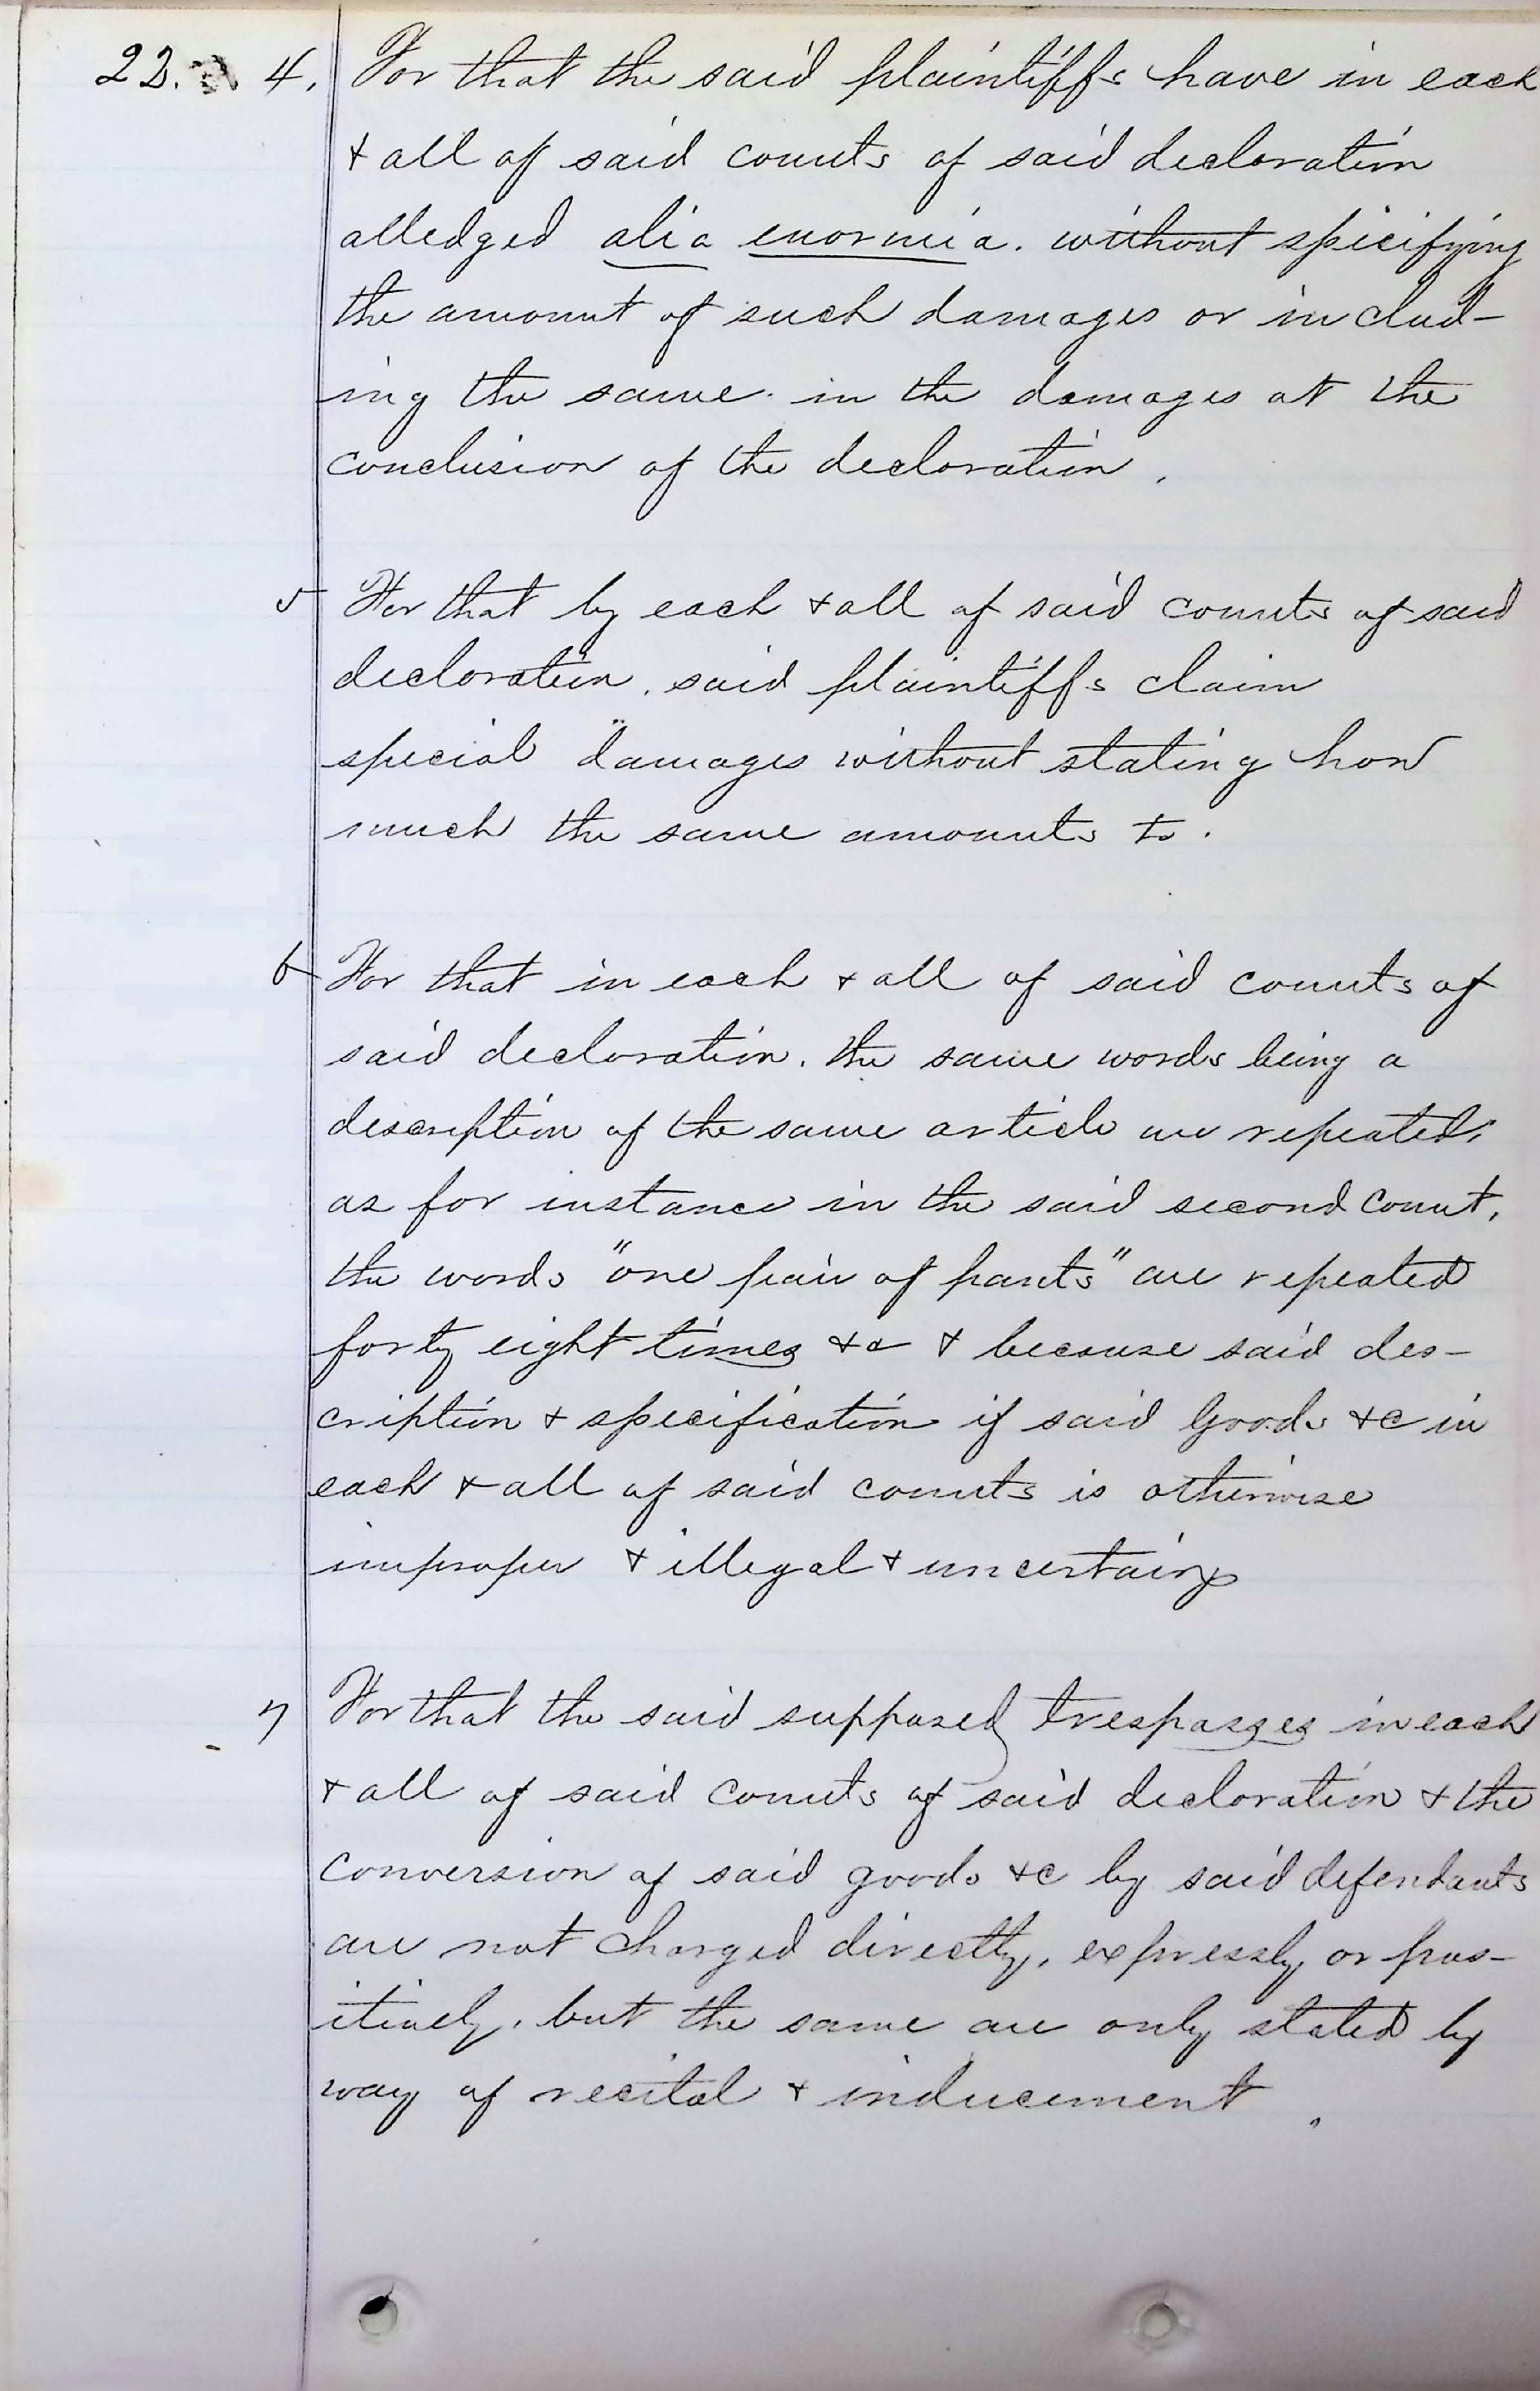 22. 4. For that the said plaintiffs have in each
& all of said counts of said declaration
alledged alia enormia. without specifying
the amount of such damages or includ-
ing the same in the damages at the
conclusion of the declaration.
5 For that by each & all of said counts of said
declaration, said plaintiffs claim
special damages without stating how
much the same amounts to.
6 For that in each & all of said counts of
said declaration, the same words being a
description of the same article are repeated;
as for instance in the said second count,
the words "one pair of pants" are repeated
forty eight times &c & because said des-
cription & specification if said goods &c in
each & all of said counts is otherwise
improper & illegal & uncertain
7 For that the said supposed trespasses in each
& all of said counts of said declaration & the
conversion of said goods &c by said defendants
are not charged directly, expressly, or pos-
itively, but the same are only stated by
way of recital & inducement.